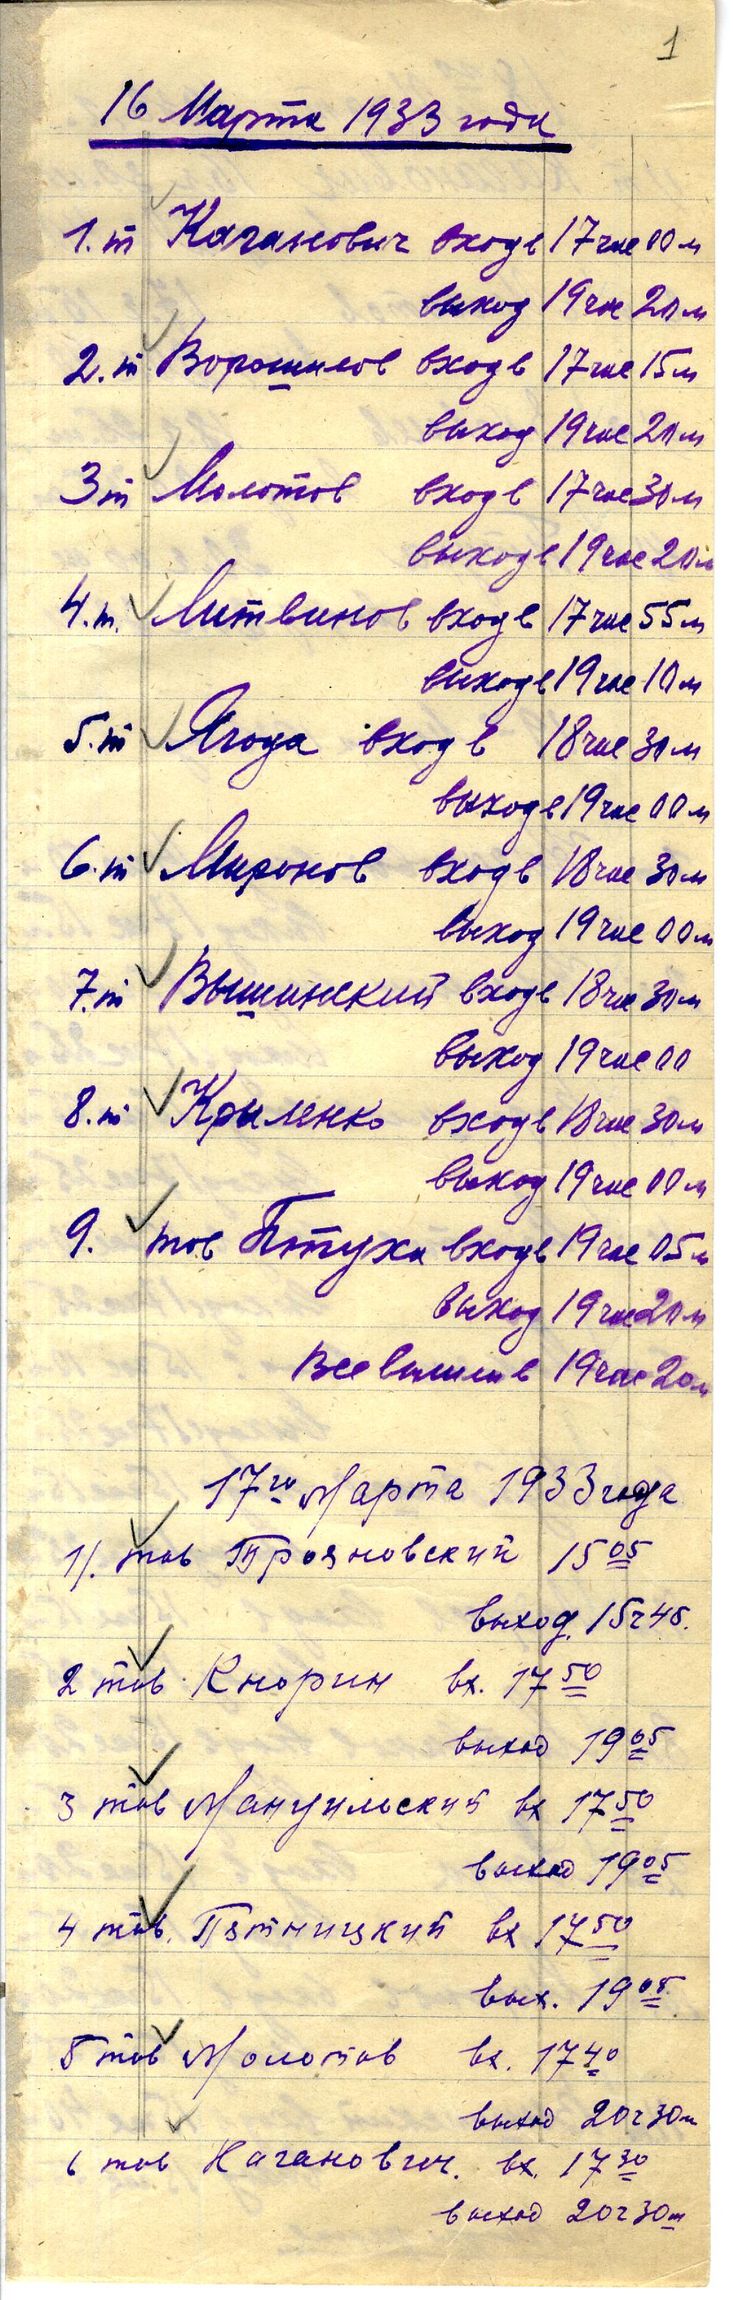 1
16 Марта 1933 года
1. т Каганович вход в 17 час 00 м
выход 19 час 20 м
2. т Ворошилов вход в 17 час 15 м
выход 19 час 20 м
3 т Молотов вход в 17 час 30 м
выход в 19 час 20 м
4. т. Литвинов вход в 17 час 55 м
выход в 19 час 10 м
5. т Ягода вход в 18 час 30 м
выход в 19 час 00 м
6. т Миронов вход в 18 час 30 м
выход 19 час 00 м
7. т Вышинский вход в 18 час 30 м
выход 19 час 00
8. т Крыленко вход в 18 час 30 м
выход 19 час 00 м
9. тов Птуха вход в 19 час 05 м
выход 19 час 20 м
Все вышли в 19 час 20 м
17го Марта 1933 года
1/. тов Трояновский 15 05
выход. 15 ч 45.
2 тов. Кнорин вх. 17 50
выход 19 05
3 тов Мануильский вх 17 50
выход 19 05
4 тов. Пятницкий вх 17 50
вых. 19 05
5 тов Молотов вх. 17 40
выход 20 ч 30 м
6 тов Каганович. вх. 17 30
выход 20 ч 30 м